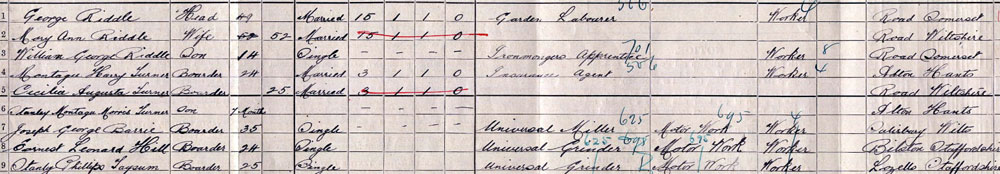 1 George Riddle Head 49 Married 15 1 1 0 Garden Labourer Worker 4 Road Somerset
2 Mary Ann Riddle Wife 52 52 Married 15 1 1 0 Road Wiltshire
3 William George Riddle Son 14 Single - - - - Ironmongers Apprentice 701 Worker 8 Road Somerset
4 Montagu Harry Turner Boarder 24 Married 3 1 1 0 Insurance Agent 506 Worker 4 Alton Hants
5 Cecilia Augusta Turner Boarder 25 Married 3 1 1 0 Road Wiltshire
6 Stanley Montagu Morris Turner Son 7 Months - - - - Alton Hants
7 Joseph George Barrie Boarder 35 Single - - - - Universal Miller 625 Motor Work 695 Worker 4 Wilts
8 Earnest Leonard Hill Boarder 24 Single Universal Grinder 625 695 Motor Work 695 Worker Bilston Staffordshire
9 Stanly Phillips Taysum Boarder 25 Single Universal Grinder Motor Work Worker Lozells Staffordshire